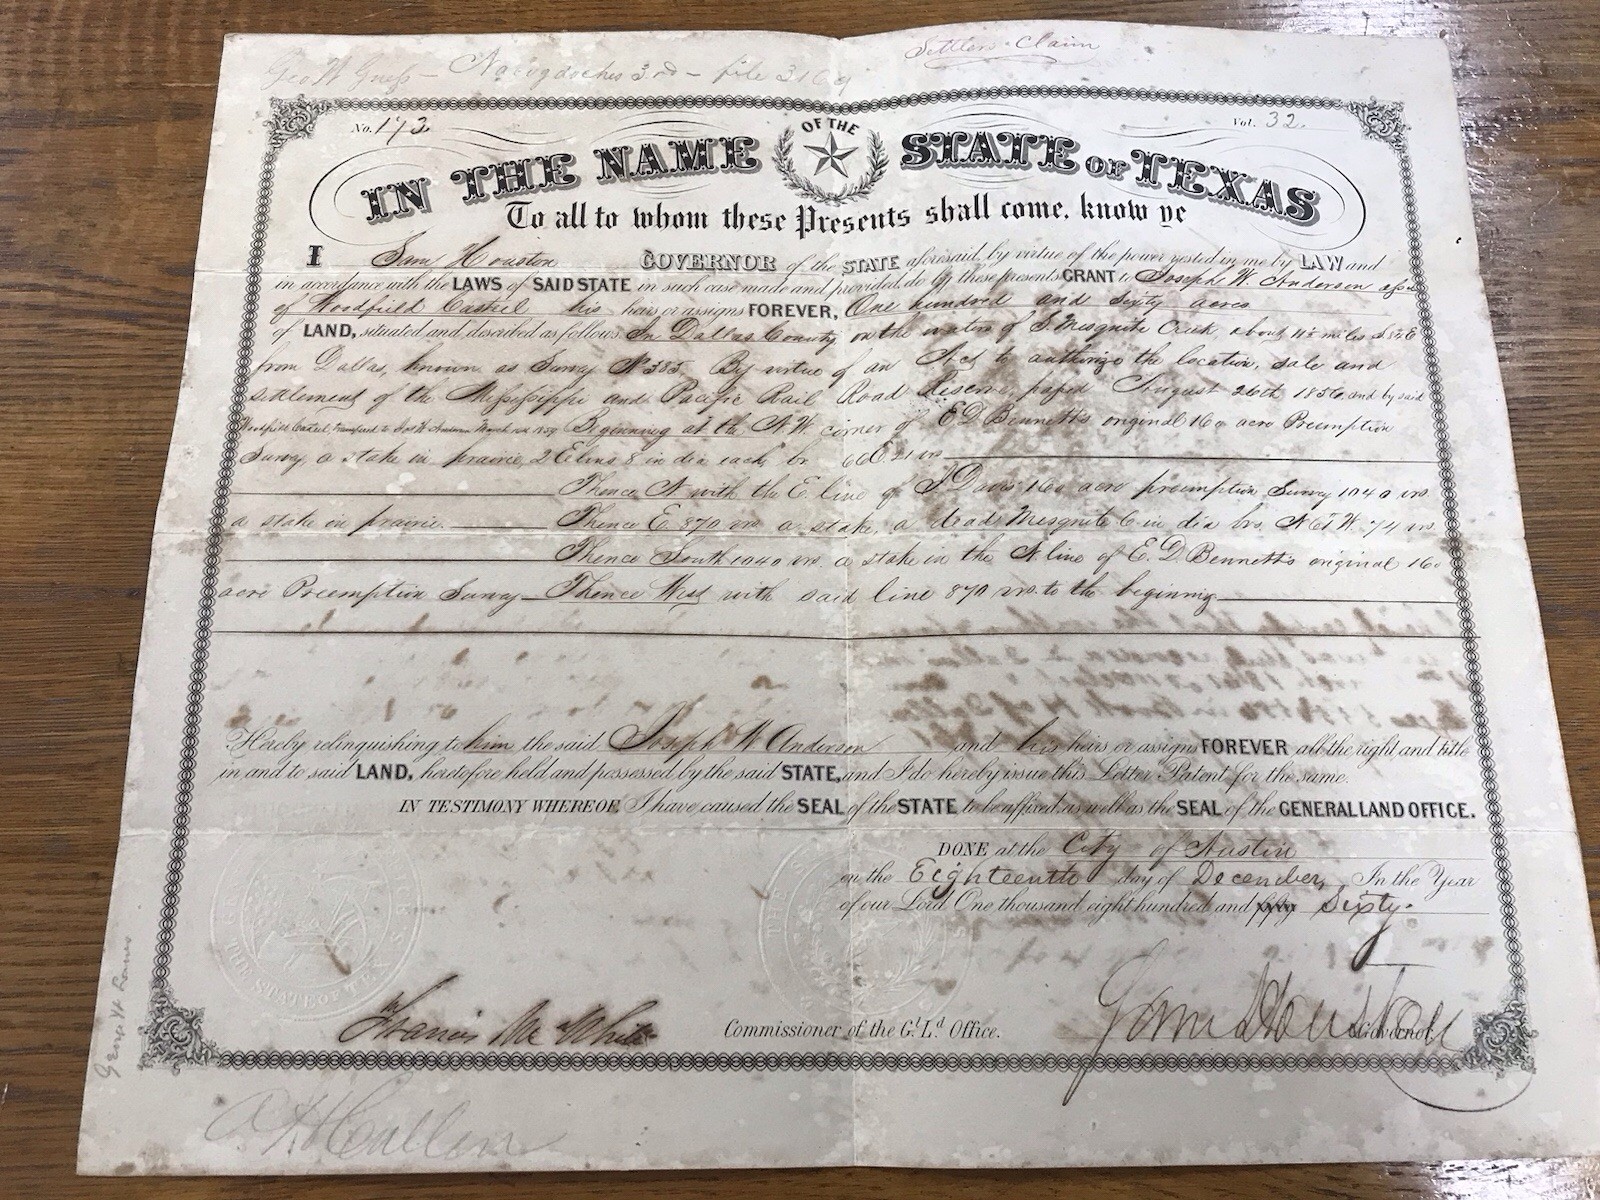 Settlers Claim
Geo W Guess - Nacogdoches 3rd - file 3169
No. 173. Vol. 32.
IN THE NAME OF THE STATE OF TEXAS
To all to whom these Presents shall come, know ye
I Sam Houston GOVERNOR of the STATE aforesaid, by virtue of the power vested in me by LAW and
in accordance with the LAWS of SAID STATE in such case made and provided, do by these presents GRANT to Joseph W. Anderson assee
of Woodfield Casteel his heirs or assigns FOREVER, One hundred and sixty acres
of LAND, situated and described as follows: In Dallas County on the waters of S. Mesquite Creek, about miles
from Dallas, known as Survey No 385. By virtue of an Act to authorize the location, sale and
settlement of the Mississippi and Pacific Rail Road Reserve, passed August 26th 1856, and by said
transferred to Beginning at the N.W. corner of E D Bennett's original 160 acre Preemption
Survey, a stake in prairie, 2 Elms 8 in dia each, br 21 vrs
Thence N with the E. line of J Davis 160 acre preemption Survey 1040 vrs
a stake in prairie. Thence E. 870 vrs a stake, a dead Mesquite 6 in dia brs. W. 74 vrs.
Thence South 1040 vrs. a stake in the N line of E. D Bennett's original 160
acre Preemption Survey Thence West with said line 870 vrs. to the beginning
Hereby relinquishing to him the said Joseph W Anderson and his heirs or assigns FOREVER all the right and title
in and to said LAND, heretofore held and possessed by the said STATE, and I do hereby issue this Letter Patent for the same.
IN TESTIMONY WHEREOF, I have caused the SEAL of the STATE to be affixed, as well as the SEAL of the GENERAL LAND OFFICE.
DONE at the City of Austin
on the Eighteenth day of December, In the Year
of our Lord One thousand eight hundred and fifty Sixty.
THE STATE OF TEXAS
Francis M White Commissioner of the Gl. Ld. Office. Sam Houston Governor